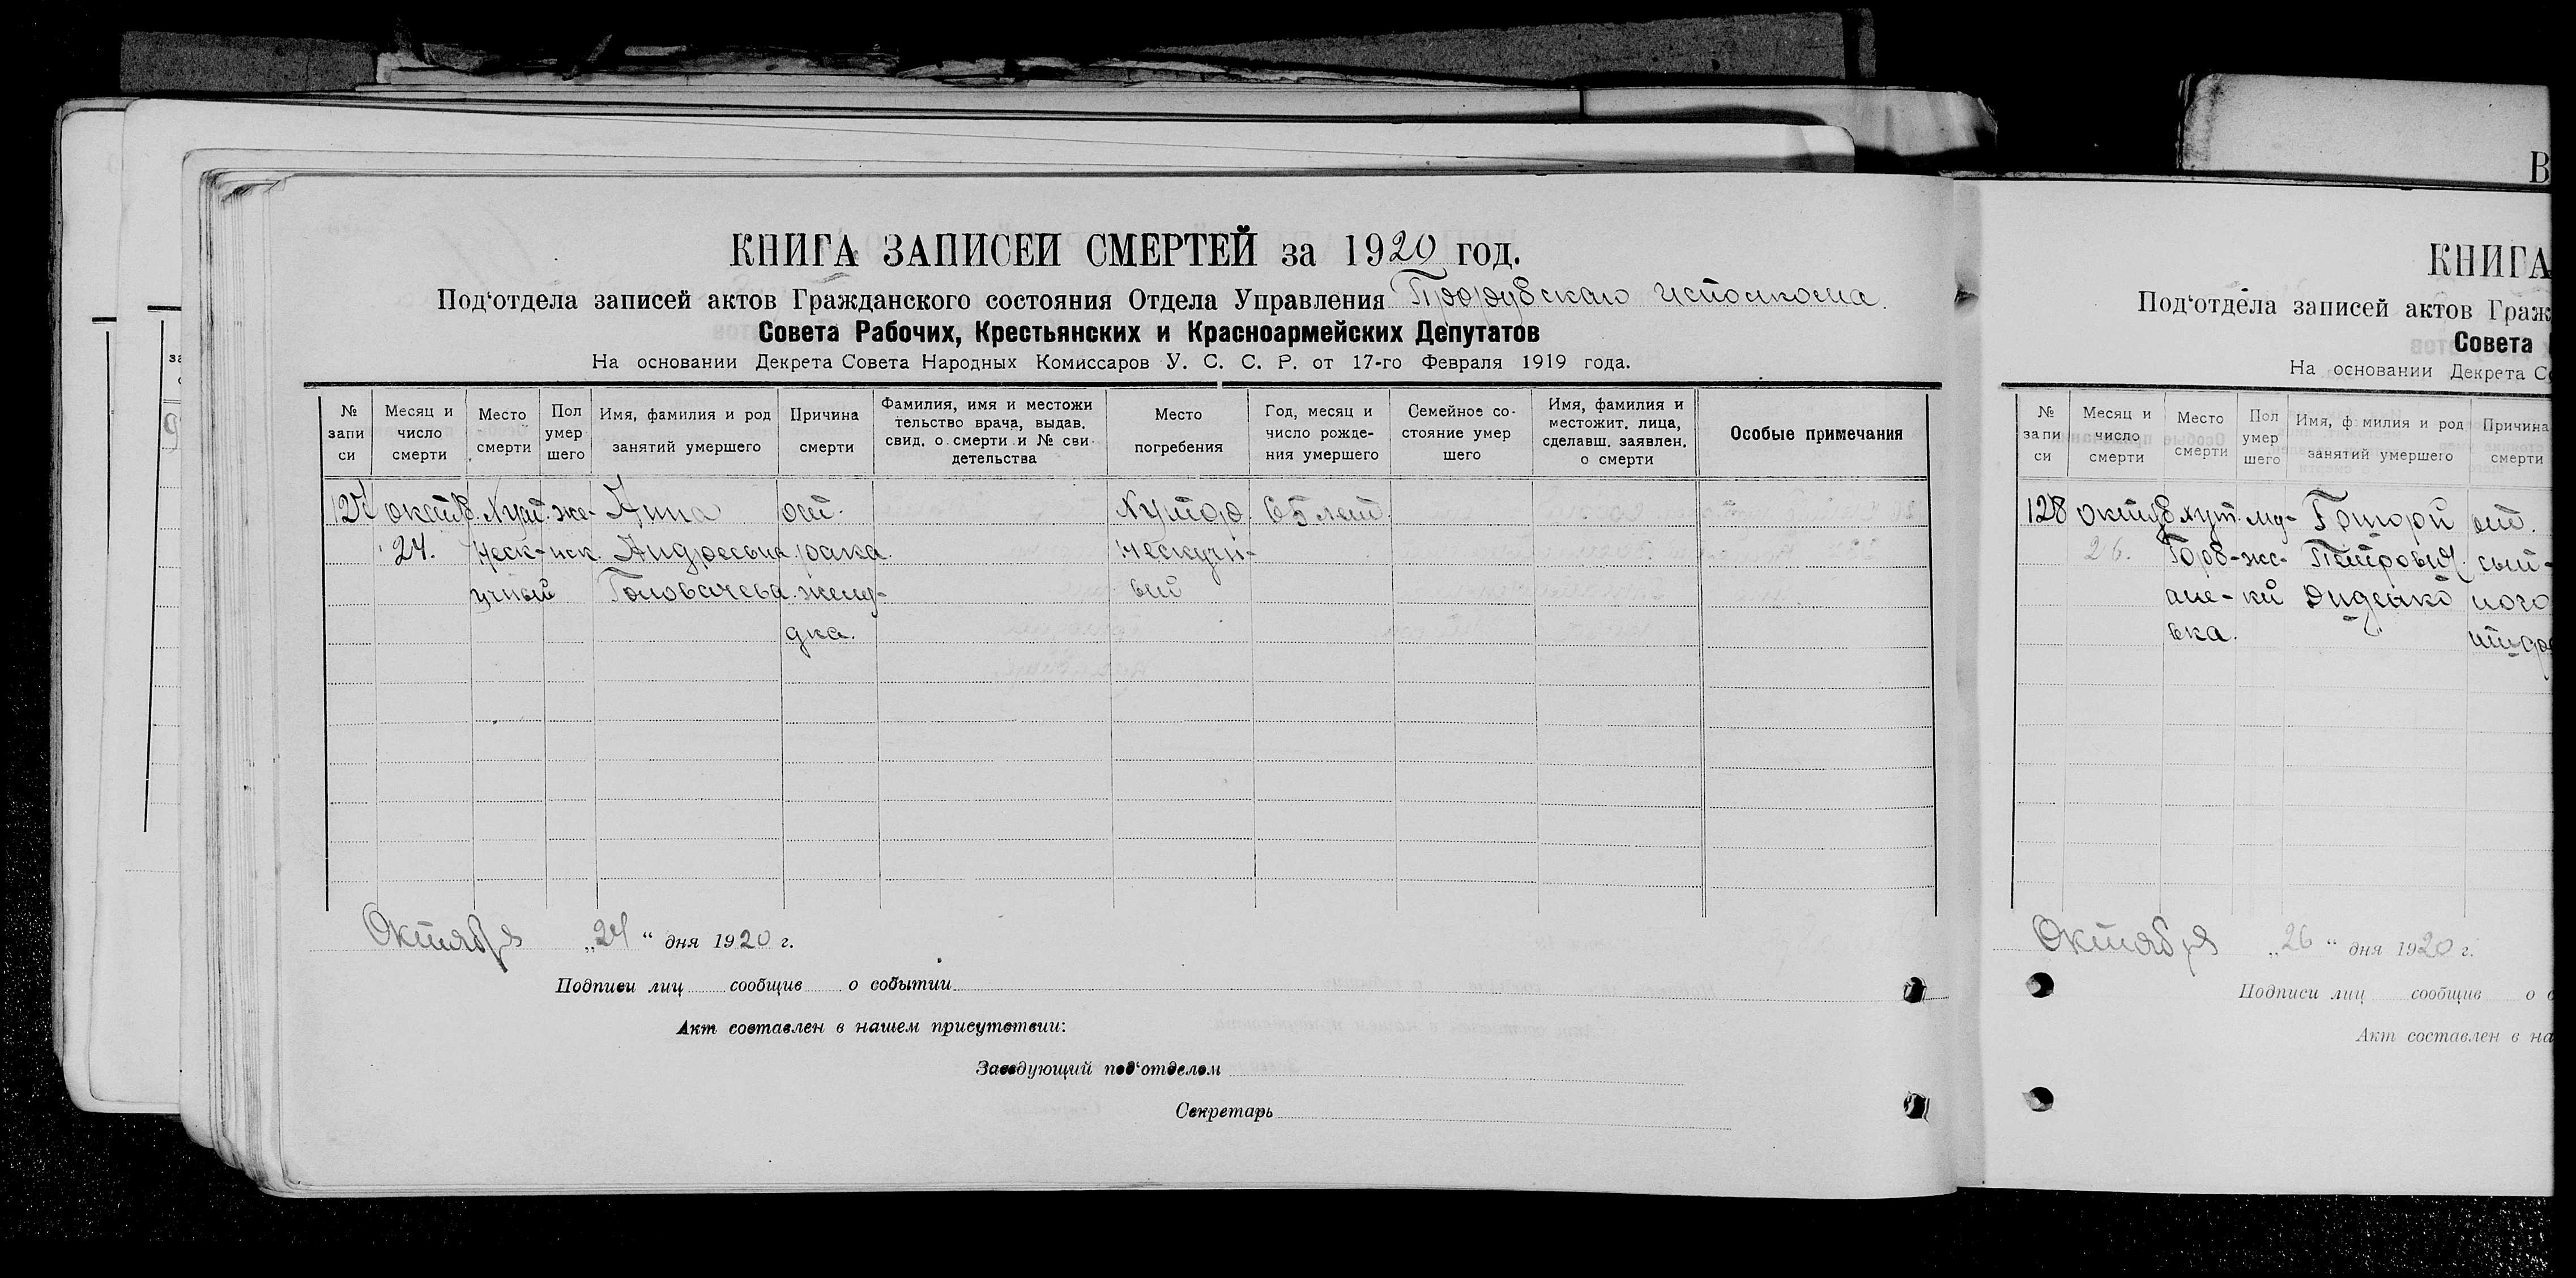 КНИГА ЗАПИСЕЙ СМЕРТЕЙ за 1920 год.
Под‘отдела записей актов Гражданского состояния Отдела Управления исполкома.
Совета Рабочих, Крестьянских и Красноармейских Депутатов
На основании Декрета Совета Народных Комиссаров У. С. С. Р. от 17-го Февраля 1919 года.
№ запи си
Месяц и число смерти
Место смерти
Пол умер шего
Имя, фамилия и род занятий умершего
Причина смерти
Фамилия, имя и местожи тельство врача, выдав. свид. о смерти и № сви- детельства
Место погребения
Год, месяц и число рожде- ния умершего
Семейное со- стояние умер шего
Имя, фамилия и местожит. лица, сделавш. заявлен. о смерти
Особые примечания
127 октяб. Хут. же- Анна от. Хутор 65 лет.
24. Неск- нск. Андреевна рака Нескучн-
учный Головачева желу- ый
дка.
Октября „24“ дня 1920 г.
Подписи лиц сообщив о событии
Акт составлен в нашем присутствии:
Заведующий под‘отделом
Секретарь
В
КНИГА
Под‘отдела записей актов Граж
Совета
На основании Декрета С
№ запи си
Месяц и число смерти
Место смерти
Пол умер шего
Имя, фамилия и род занятий умершего
Причина смерти
128 октяб хут. му- от.
26. Горб- жс- Петрович сып-
ане- кий Диденко ного
вка.
Октября „26“ дня 1920 г.
Подписи лиц сообщив о
Акт составлен в на